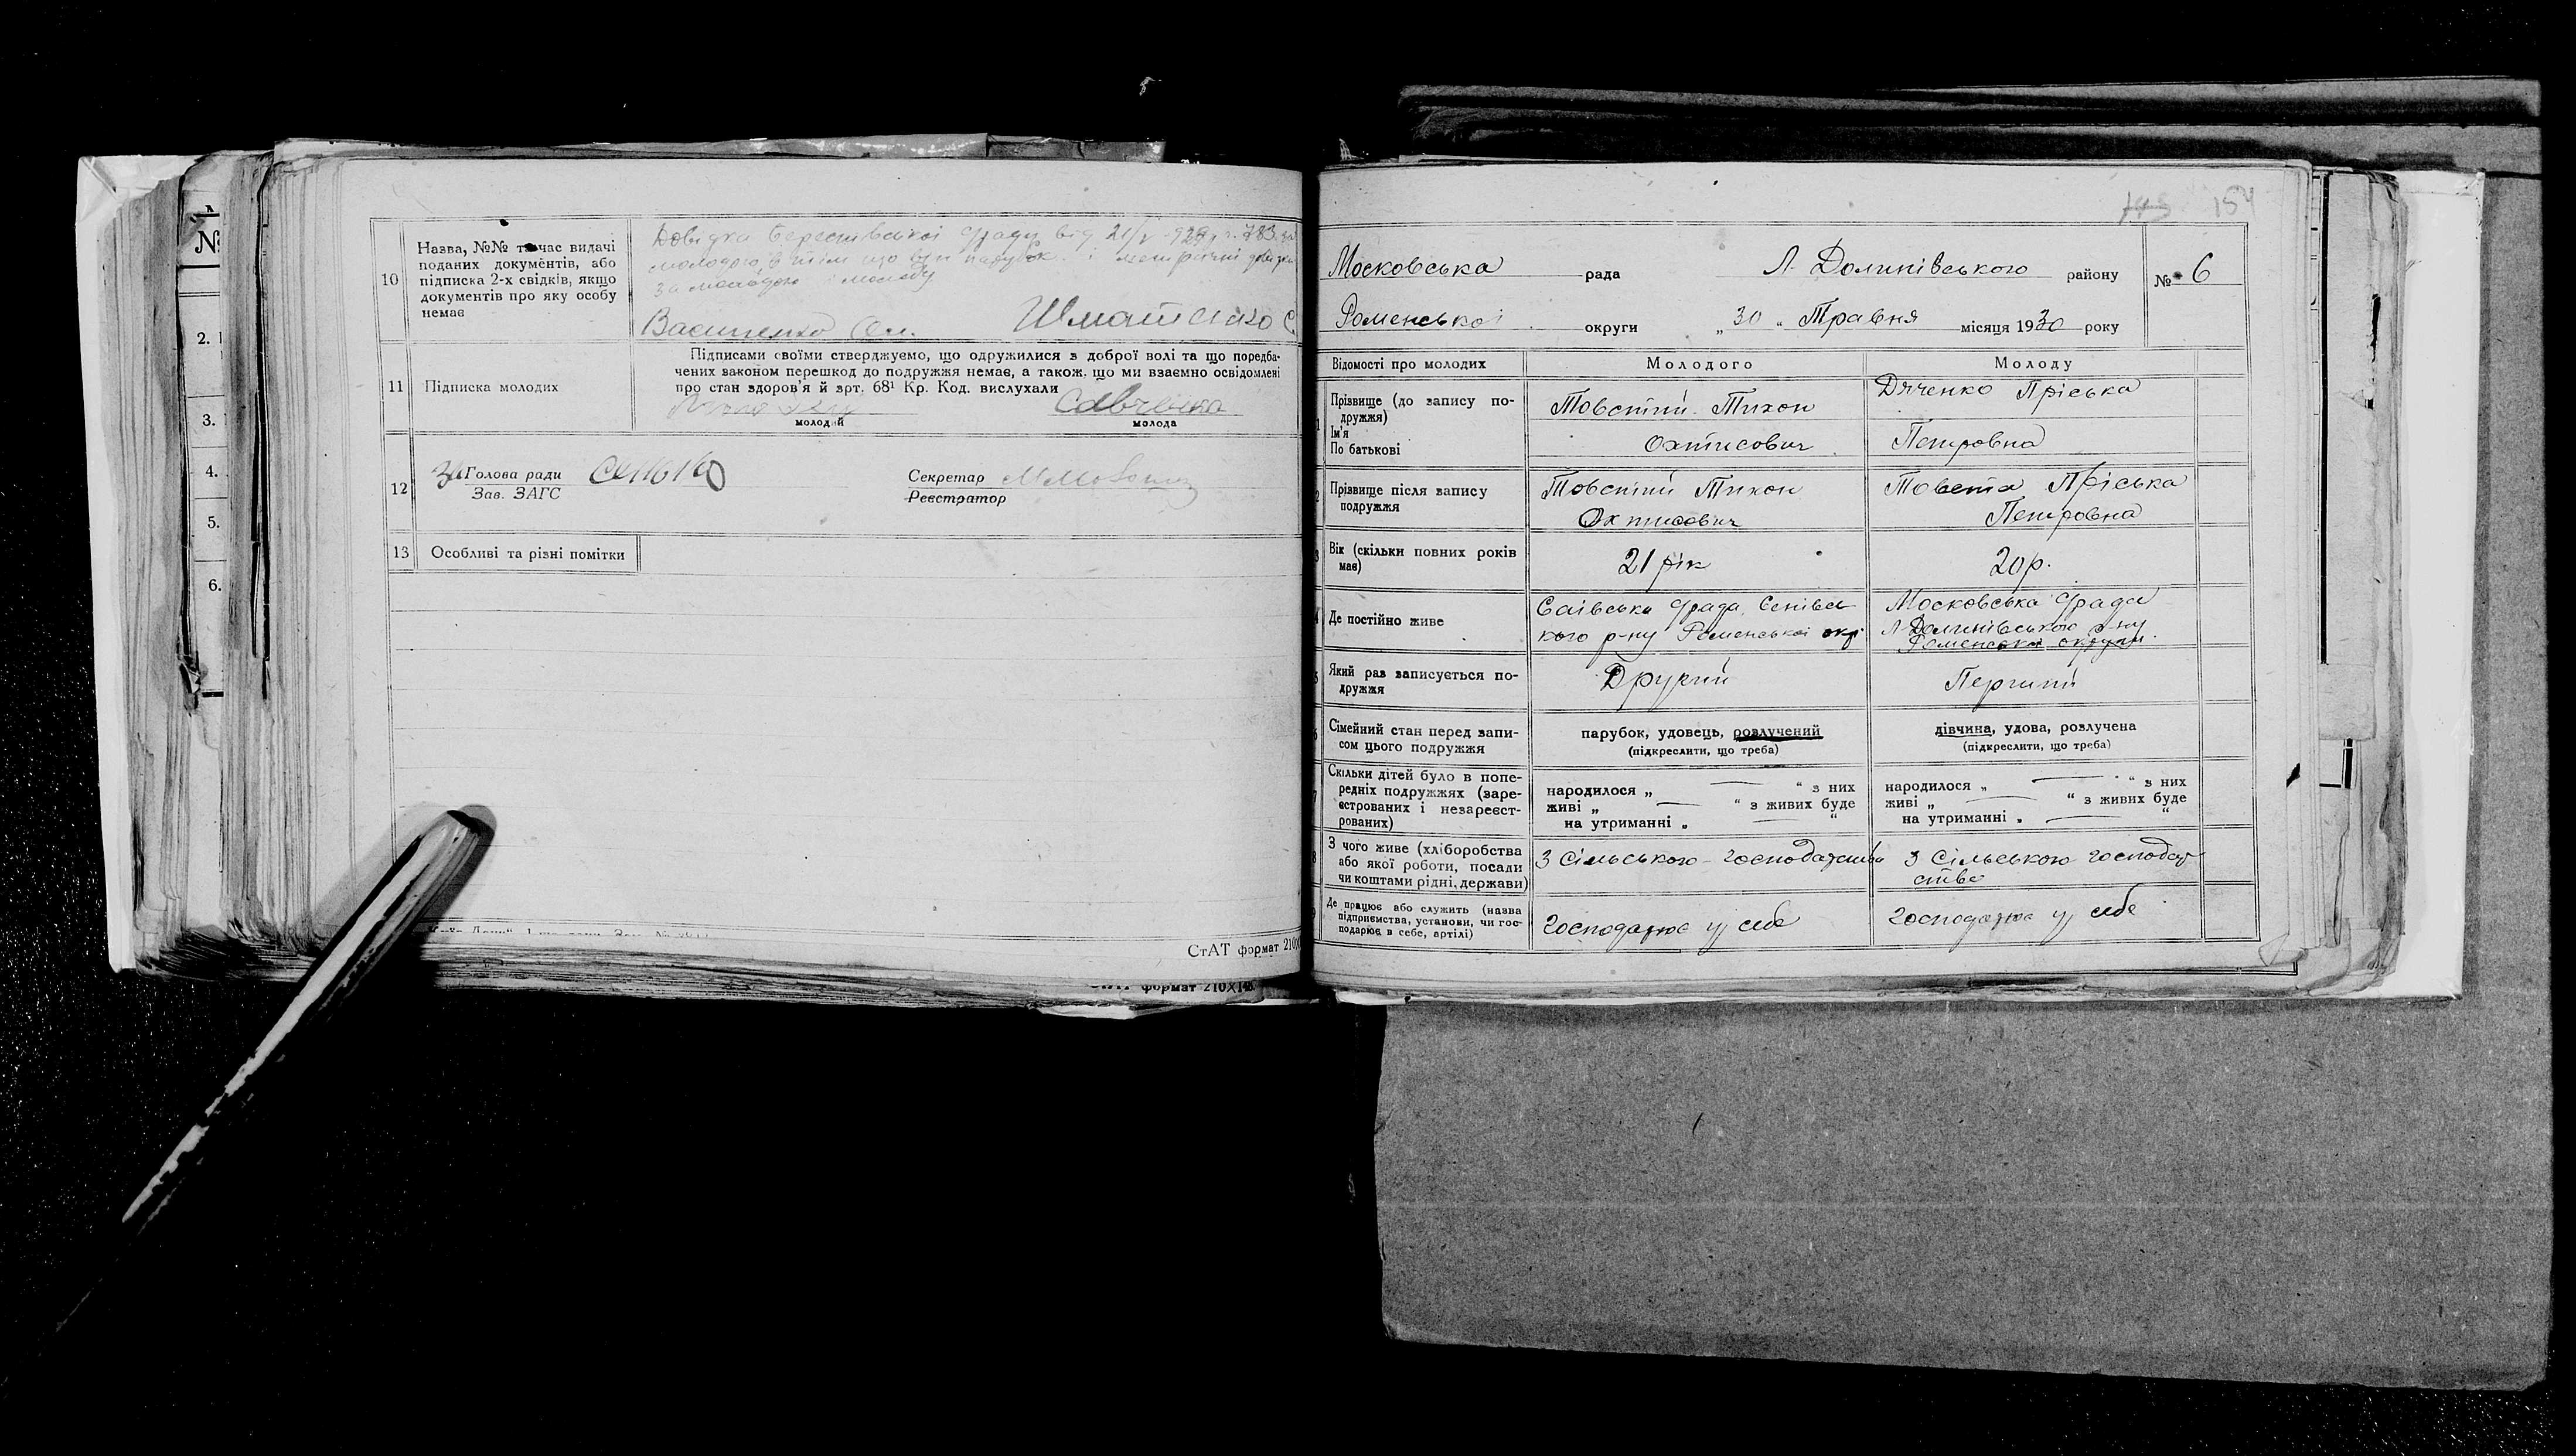 №
2.
3.
4.
5.
6.
10
Назва, №№ та час видачі
поданих документів, або
підписка 2-х свідків, якщо
документів про яку особу
немає
Довідка Берестівської с/ради від 21/V-929 р. 783 за
молодого в тім що він парубок і метричні довідки
за молодого і молоду
Василенко Ол. Шматченко С
11
Підписка молодих
Підписами своїми стверджуємо, що одружилися з доброї волі та що поредба-
чених законом перешкод до подружжя немає, а також, що ми взаємно освідомлені
про стан здоров'я й арт. 68¹ Кр. Код. вислухали
Савченко
молодий молода
12
За Голова ради Сенько Секретар
Зав. ЗАГС Реєстратор
13 Особливі та різні помітки
СтАТ формат 210X
формат 210X148
145 154
Московська рада Л-Долинівського району № 6
Роменської округи „30" Травня місяця 1930 року
Відомості про молодих Молодого Молоду
Прізвище (до запису по-
дружжя)
Ім'я
По батькові
Товстий Тихон
Охтисович
Дяченко Пріська
Петровна
Прізвище після запису
подружжя
Товстий Тихон
Охтисович
Товста Пріська
Петровна
Вік (скільки повних років
має)
21 рік
20 р.
Де постійно живе
Саівська с/рада Сенівсь
кого р-ну Роменської окр
Московська с/рада
Л-Долинівського р-ну
Роменської округи.
Який раз записується по-
дружжя
Другий
Перший
Сімейний стан перед запи-
сом цього подружжя
парубок, удовець, розлучений
(підкреслити, що треба)
дівчина, удова, розлучена
(підкреслити, що треба)
Скільки дітей було в попе-
редніх подружжях (заре-
єстрованих і незареєст-
рованих)
народилося „ — " з них
живі „ — " з живих буде
на утриманні „ — "
народилося „ — " з них
живі „ — " з живих буде
на утриманні „ — "
З чого живе (хліборобства
або якої роботи, посади
чи коштами рідні, держави)
З Сільського-господарства
З Сільського господар
ства
Де працює або служить (назва
підприємства, установи, чи гос-
подарює в себе, артілі)
Господарює у себе
Господарює у себе